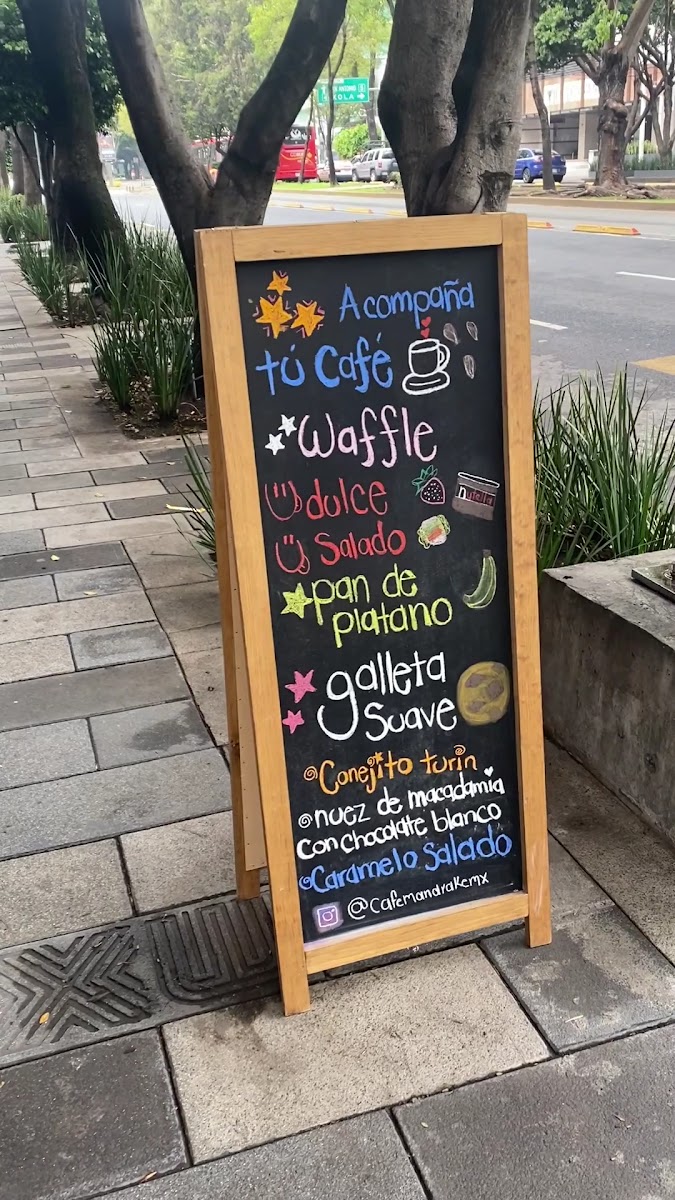 XOLA
Acompaña
tú Café
Waffle
dulce
nutella
Salado
pan de
platano
galleta
Suave
Conejito turin
nuez de macadamia
con chocolate blanco
Caramelo Salado
@Cafemandrakemx